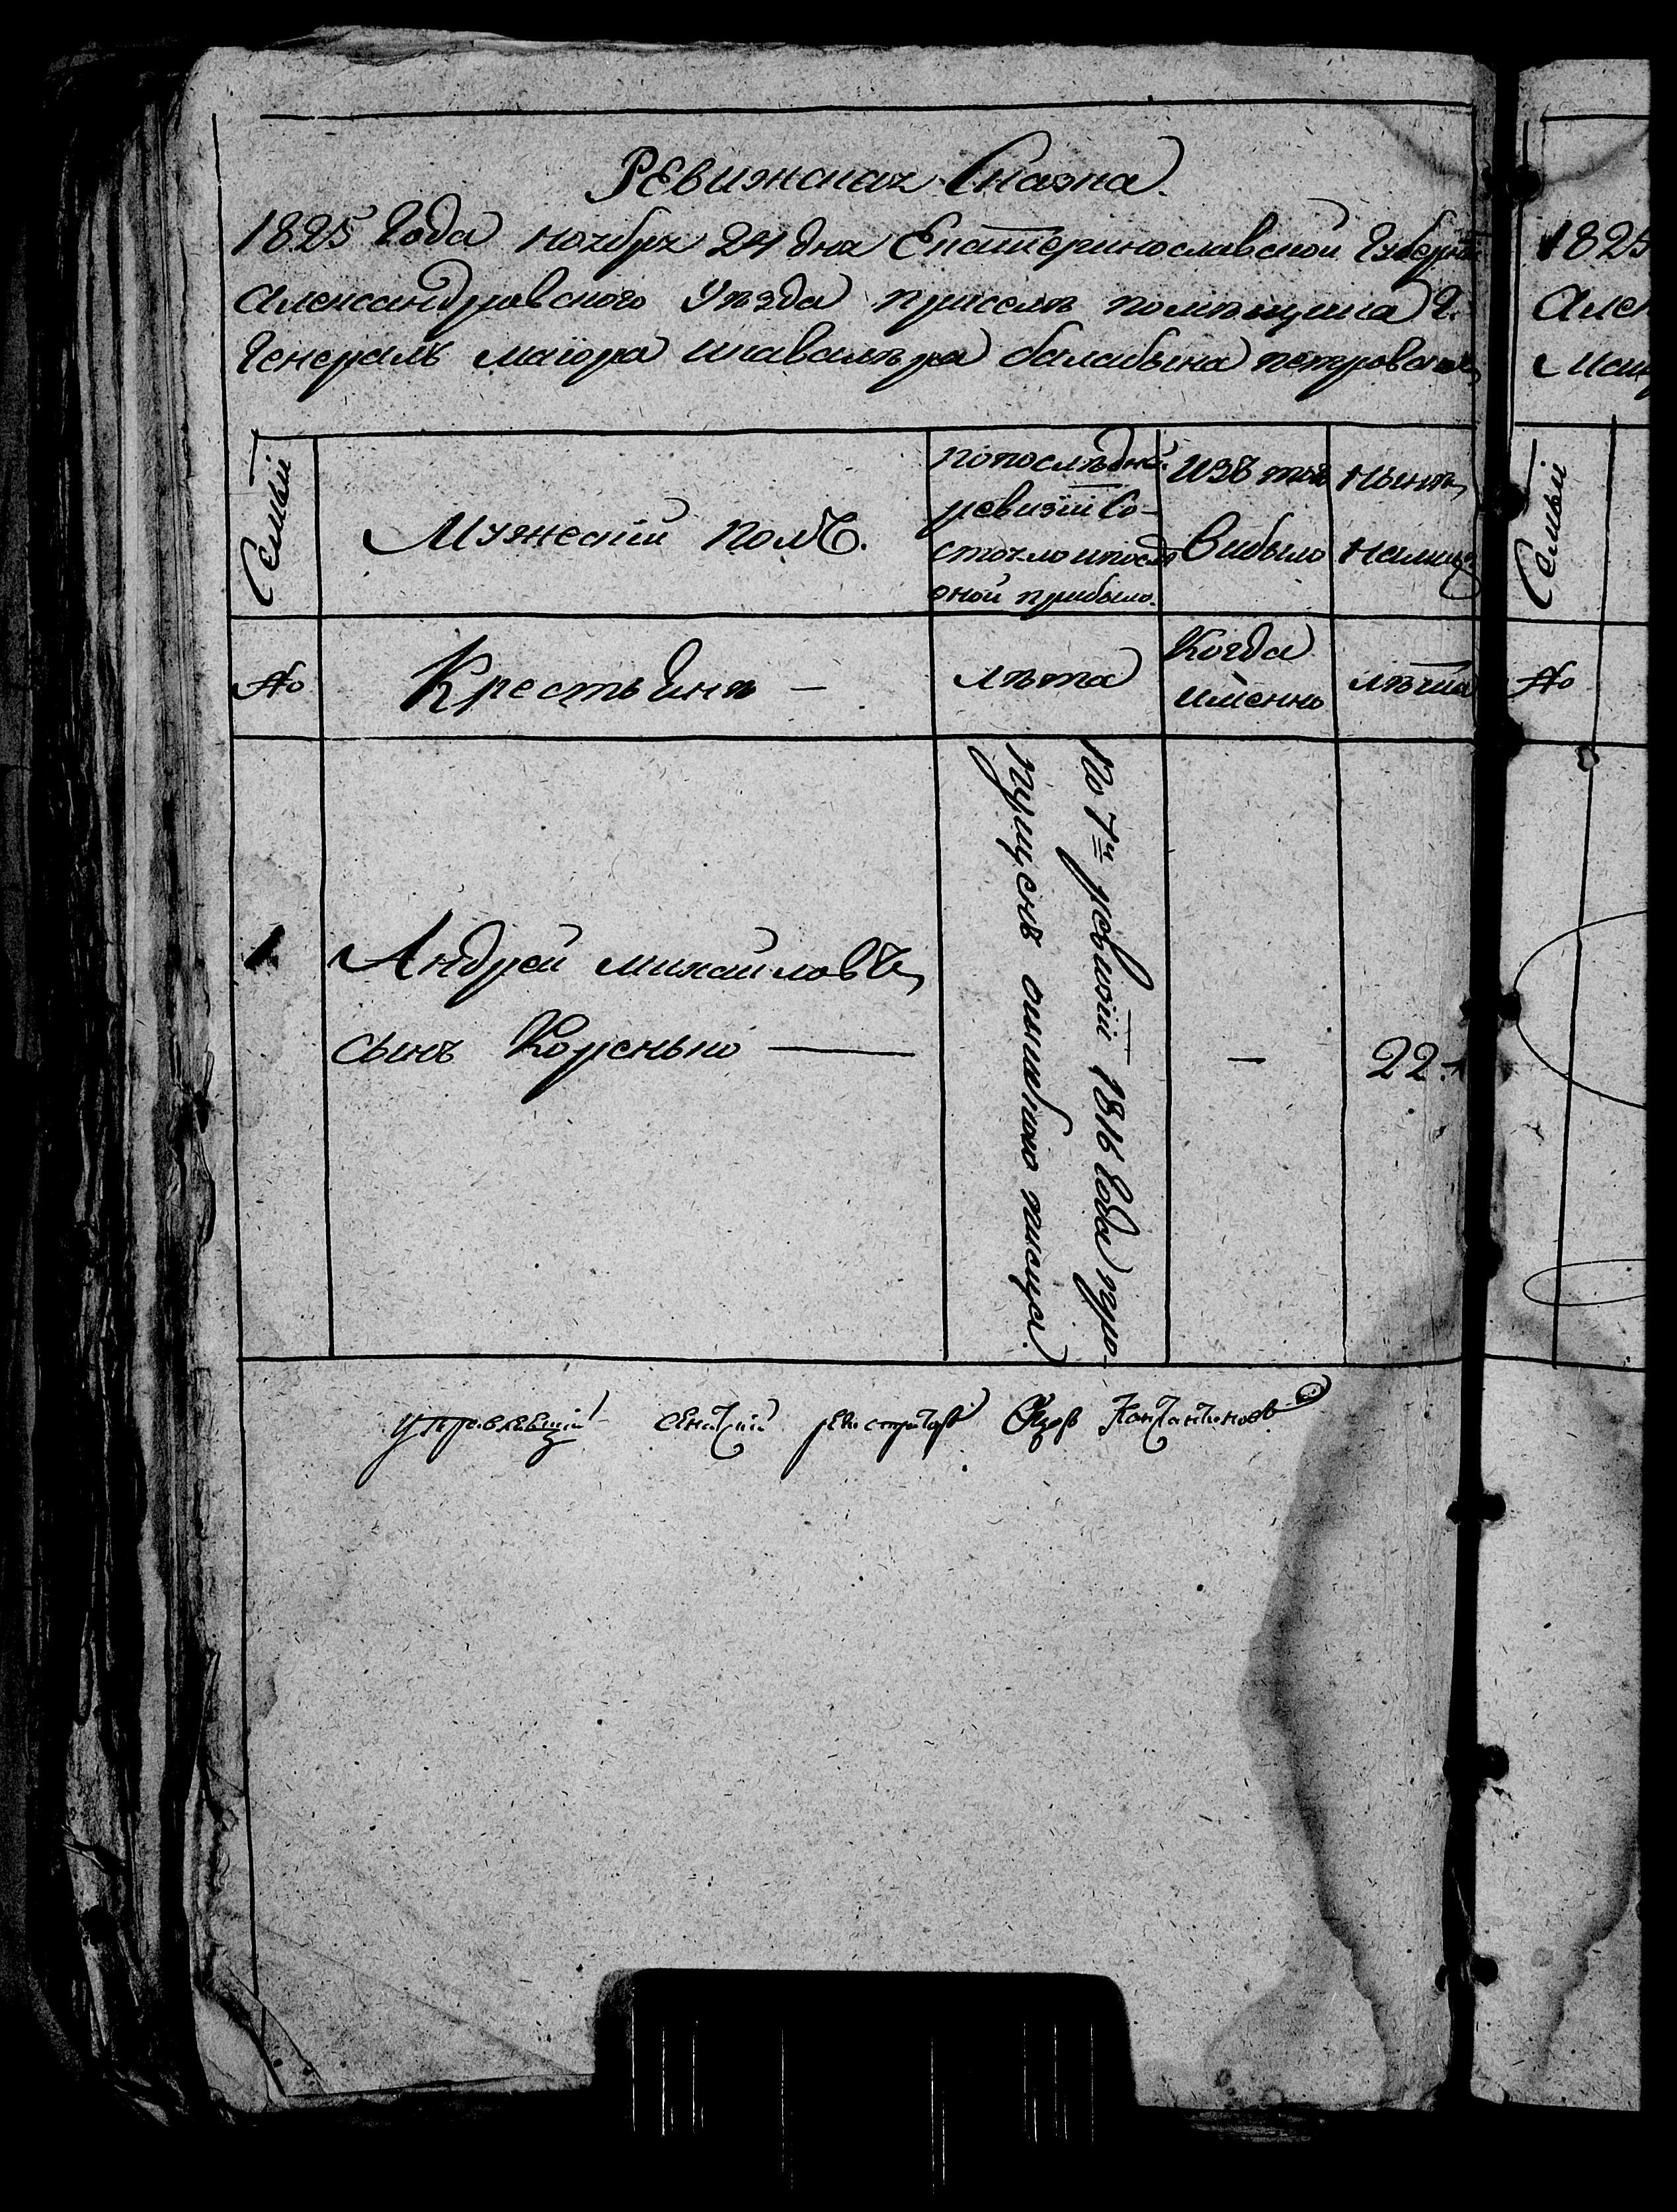 Ревижская Сказка.
1825 Года ноября 24 дня Екатеринославской Губерніи
Александровского Уезда присели помещика Г.
Генералъ маіора икавалера балабина петровскаго
Семьи
Мужескій полъ.
попоследней
ревизіи Со-
стояло ипосле
оной прибыло.
Изъ того
выбыло
Ныне
налицо
№
Крестьяне —
лета
Когда
именно
лета
1.
Андрей михайловъ
сынъ Кореньно
По 7й ревизіи 1816 Года про-
пущенъ ошибкою писца.
—
22.
управлявшій сенатскій регистраторъ Константиновъ
1825
Алек
Маі
Семьи
№